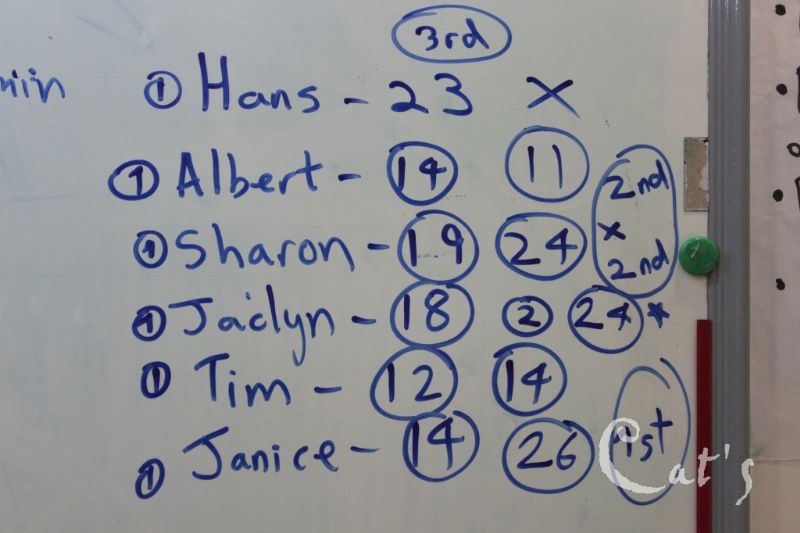 3rd
min ① Hans - 23 ×
① Albert - 14 11 2nd
① Sharon - 19 24 × 2nd
① Jaclyn - 18 ② 24 *
① Tim - 12 14
① Janice - 14 26 1st
Cat's